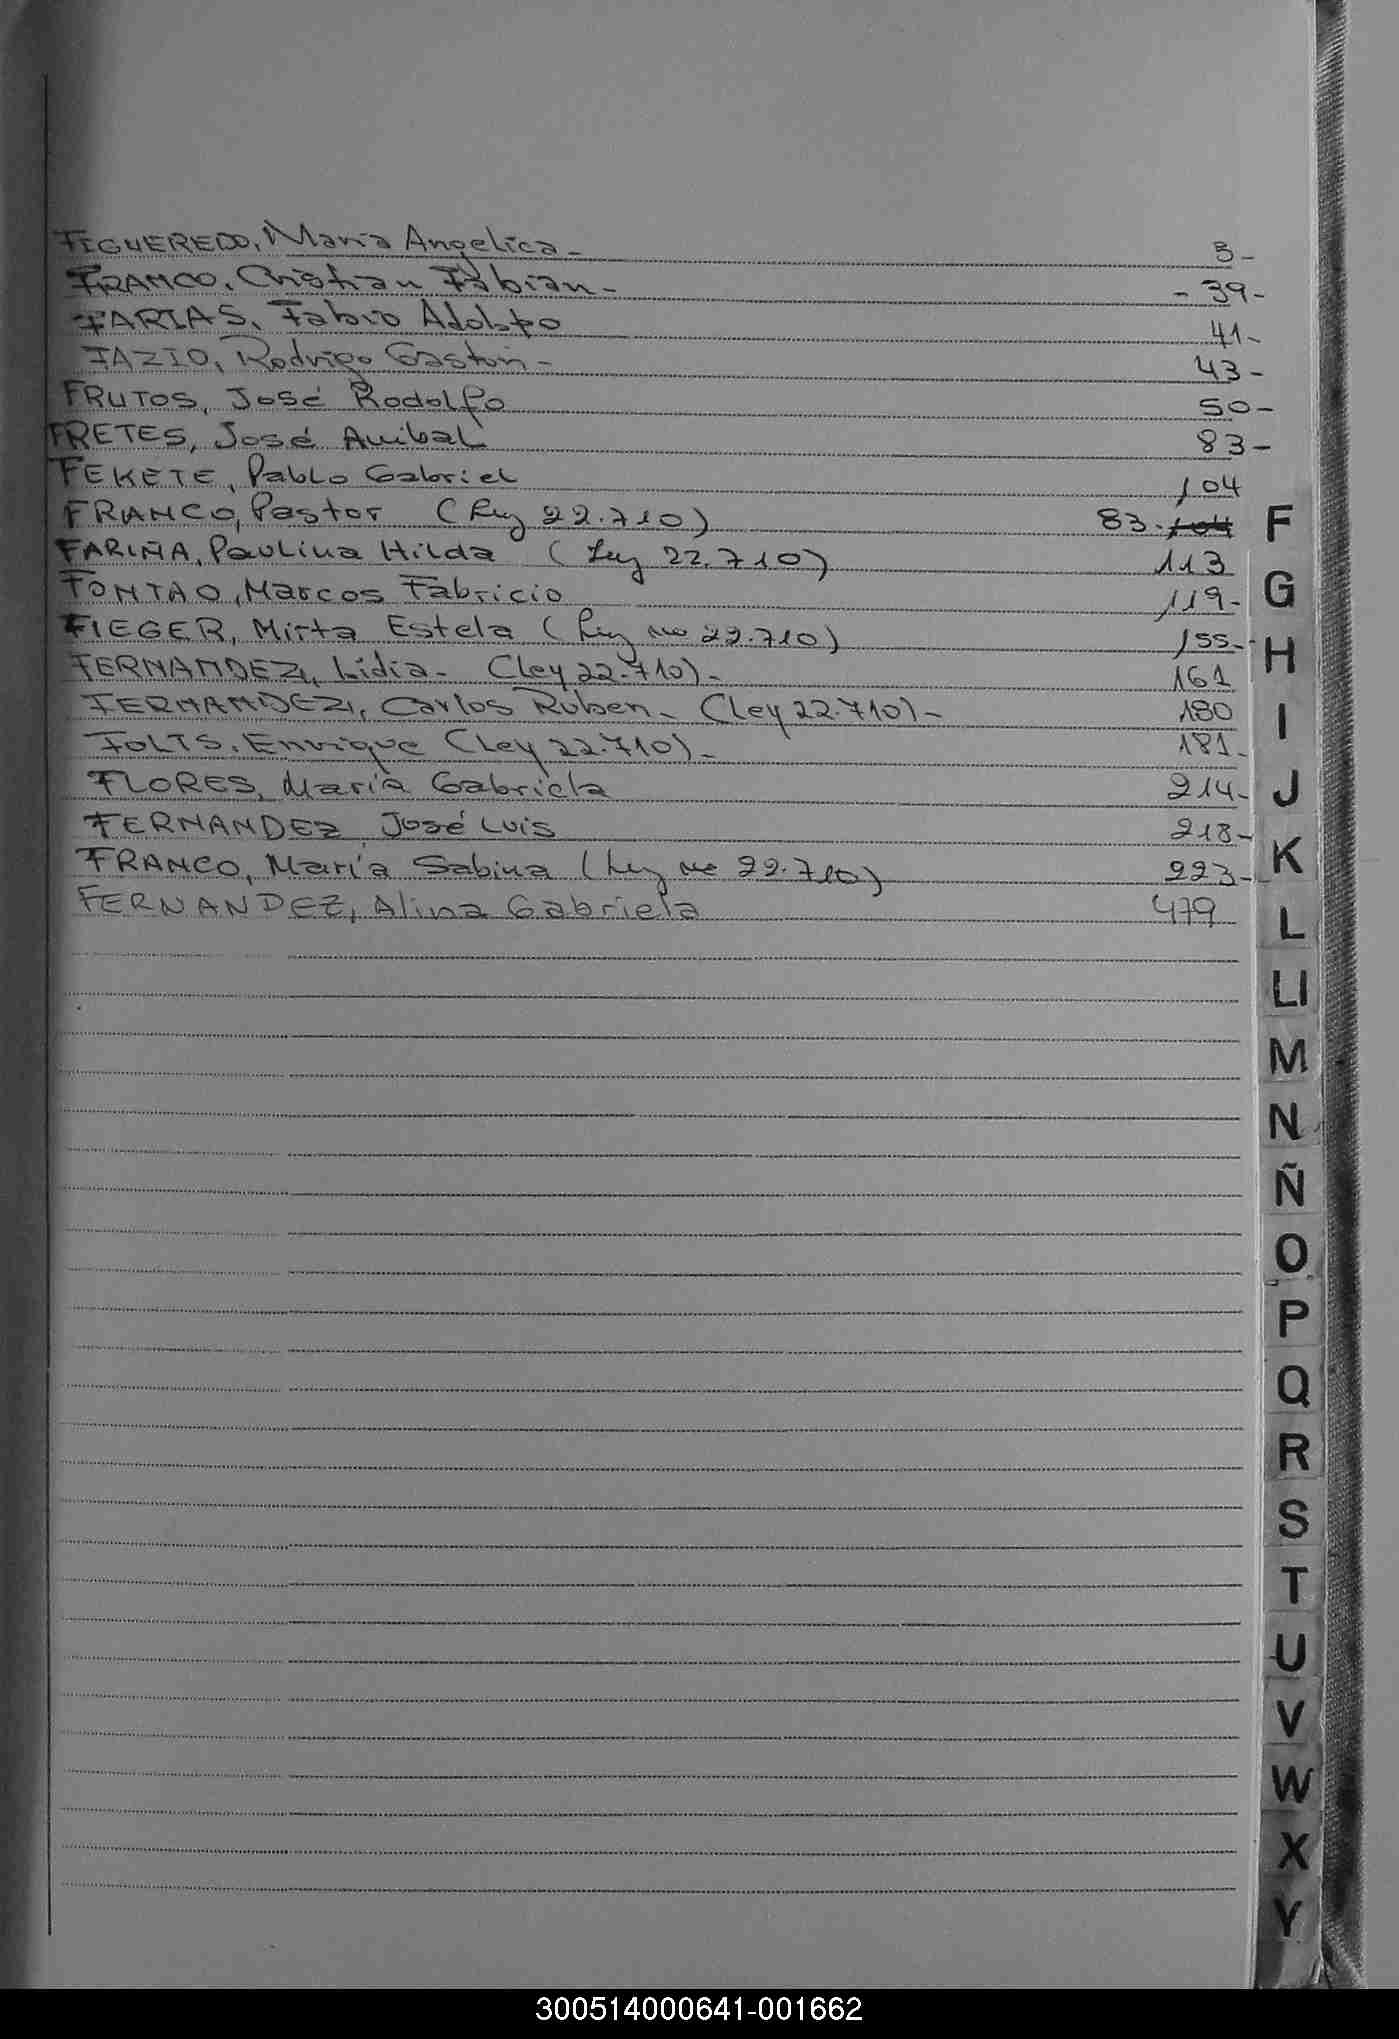 FIGUEREDO, María Angelica - 5 -
FRANCO, Cristian Fabian - - 39 -
FARIAS, Fabio Adolfo 41 -
FAZIO, Rodrigo Gaston - 43 -
FRUTOS, José Rodolfo 50 -
FRETES, José Anibal 83 -
FEKETE, Pablo Gabriel 104
FRANCO, Pastor (Ley 22.710) 83. 104
FARIÑA, Paulina Hilda (Ley 22.710) 113
FONTAO, Marcos Fabricio 119 -
FIEGER, Mirta Estela (Ley no 22.710) 155 -
FERNANDEZ, Lidia - (Ley 22.710) - 161
FERNANDEZ, Carlos Ruben - (Ley 22.710) - 180
FOLTS, Enrique (Ley 22.710) - 181 -
FLORES, María Gabriela 214 -
FERNANDEZ José Luis 218 -
FRANCO, María Sabina (Ley no 22.710) 223 -
FERNANDEZ, Alina Gabriela 479
F
G
H
I
J
K
L
Ll
M
N
Ñ
O
P
Q
R
S
T
U
V
W
X
Y
300514000641-001662